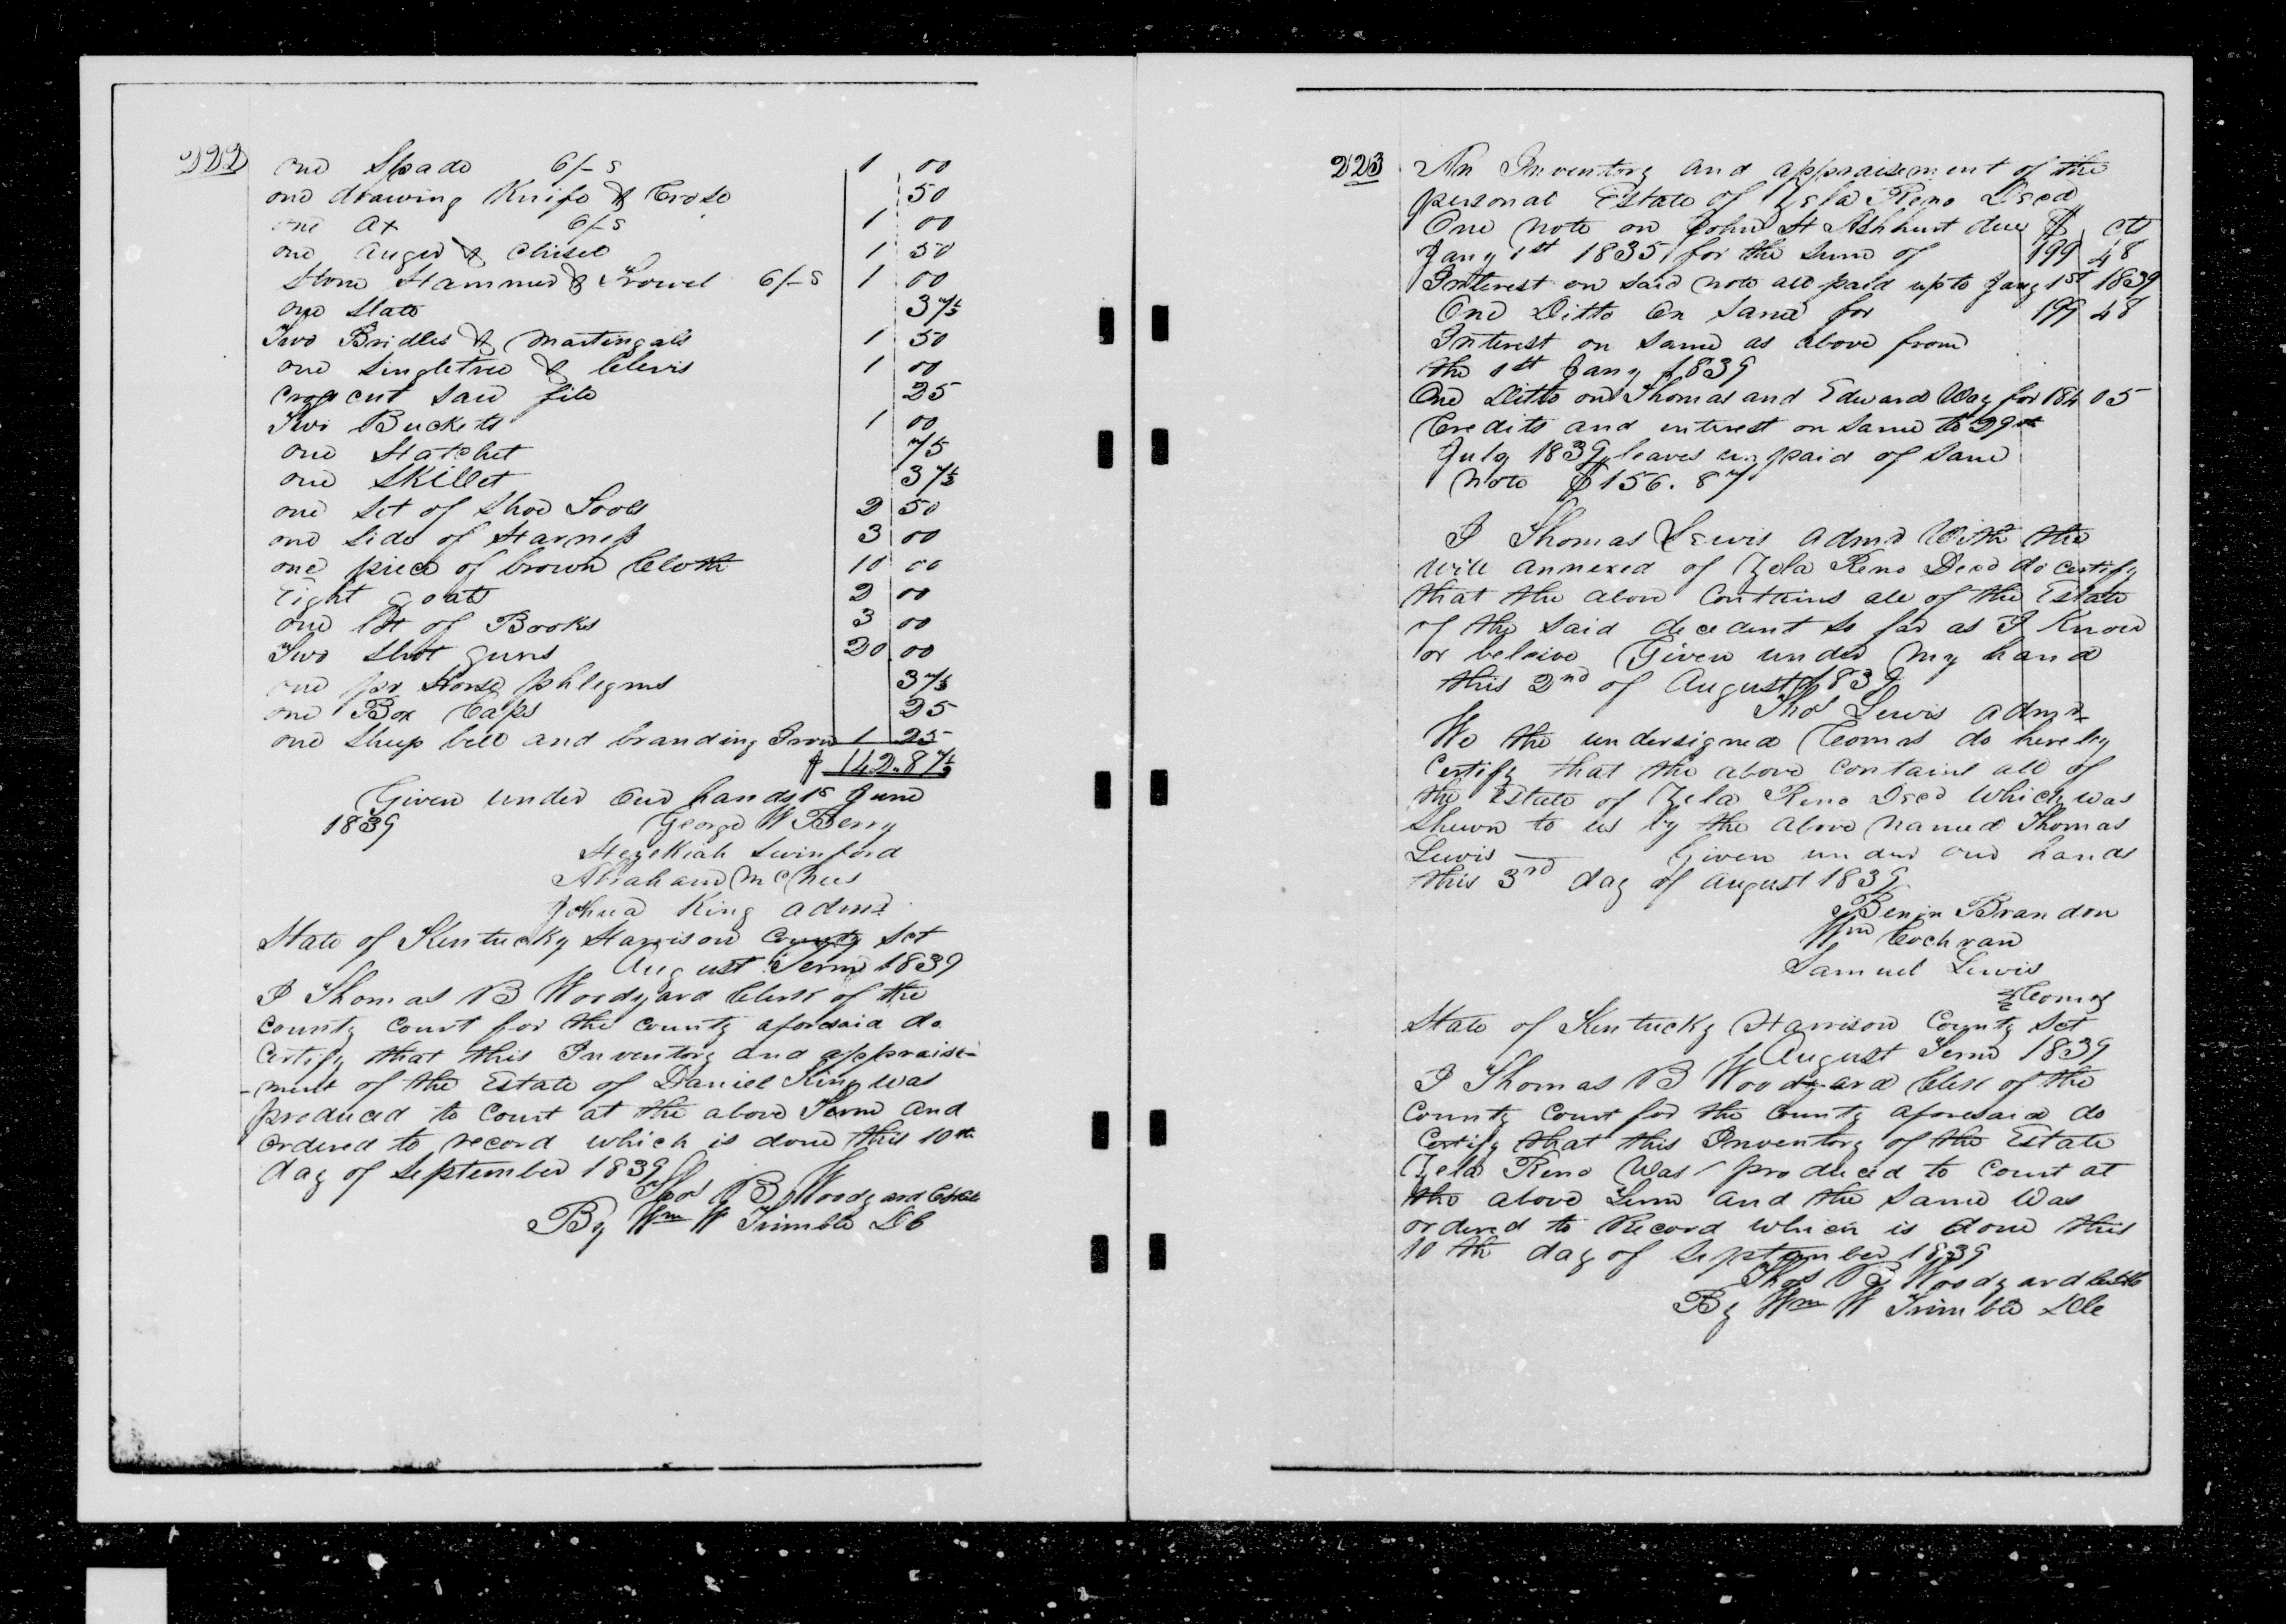 222
one Spade 6/-s 1 00
one drawing Knife & Crose 50
one ax 6/-s 1 00
one auger & chisel 1 50
Stone Hammer & Trowel 6/-s 1 00
one Slate 37½
Two Bridles & Martingals 1 50
one Singletree & Clevis 1 00
cross cut saw file 25
Two Buckets 1 00
one Hatchet 75
one Skillet 37½
one Set of Shoe Tools 2 50
one Side of Harness 3 00
one piece of brown Cloth 10 00
Eight goats 2 00
one lot of Books 3 00
Two Shot guns 20 00
one pr Horse phlegms 37½
one Box Caps 25
one Sheep bell and branding Iron 1 25
$ 142.87½
Given under our hands June
1839 George W Berry
Hezekiah Swinford
Abraham McNees
Joshua King admr
State of Kentucky Harrison County Sct
August Term 1839
I Thomas B Woodyard Clerk of the
County Court for the County aforesaid do
Certify that this Inventory and appraise-
-ment of the Estate of Daniel King was
produced to Court at the above Term and
ordered to record which is done this 10th
day of September 1839
Thos B Woodyard
By Wm W Trimble DC
223
An Inventory and appraisement of the
personal Estate of Zela Reno Decd
One Note on John H Ashhurst due $ cts
Jany 1st 1835 for the Sum of 199 48
Interest on said note all paid up to Jany 1st 1839
One Ditto on Same for 199 48
Interest on Same as above from
the 1st Jany 1839
One Ditto on Thomas and Edward Way for 184 05
Credits and interest on Same to 29th
July 1839 leaves unpaid of Same
Note $156.87
I Thomas Lewis admr With the
Will annexed of Zela Reno Decd do certify
that the above Contains all of the Estate
of the said decedent so far as I Know
or beleive Given under My hand
this 2nd of August 1839
Thos Lewis admr
We the undersigned Comrs do hereby
Certify that the above contains all of
the Estate of Zela Reno Decd Which was
Shewn to us by the above Named Thomas
Lewis Given under our hands
this 3rd day of August 1839
Benjn Brandon
Wm Cochran
Samuel Lewis
Comrs
State of Kentucky Harrison County Sct
August Term 1839
I Thomas B Woodyard Clerk of the
County Court for the County aforesaid do
Certify that this Inventory of the Estate
Zela Reno Was produced to Court at
the above Term and the Same Was
ordered to Record which is done this
10th day of September 1839
Thos B Woodyard
By Wm W Trimble DC